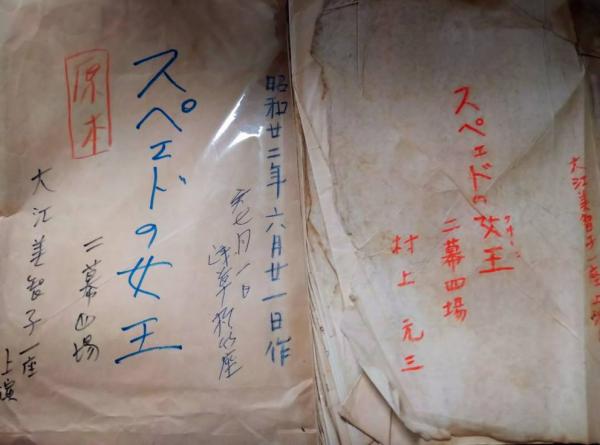 昭和廿二年六月廿一日作
七月一日
浅草松竹座
スペェドの女王
原本
二幕四場
大江美智子一座
上演
大江美智子一座上演
スペェドの女王
クイーン
二幕四場
村上元三